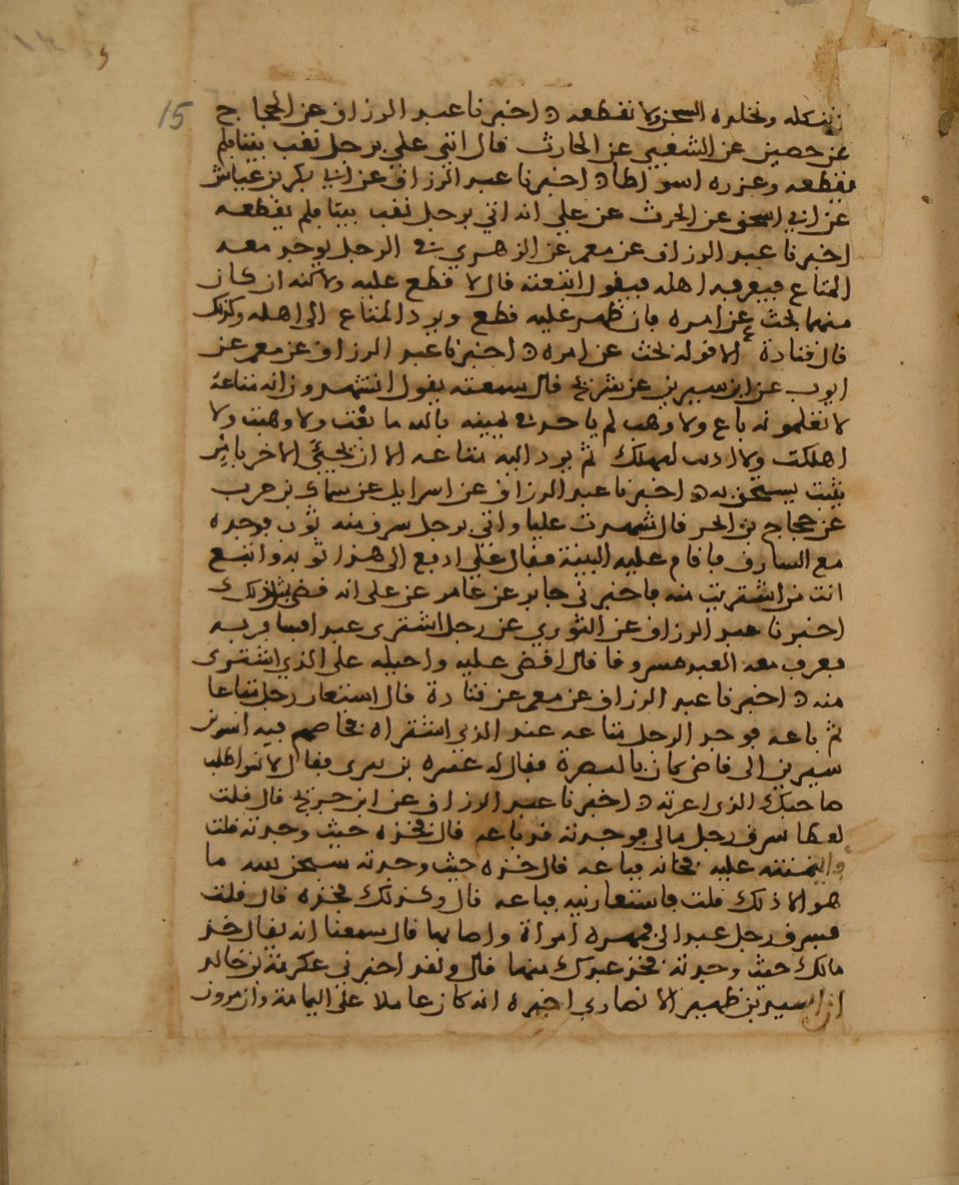 15
ننكله ونخلده السجن ولا نقطعه اخبرنا عبد الرزاق عن الحجاج
عن حصين عن الشعبي عن الحارث قال اتي علي برجل نقب بيتا فلم
يقطعه وعزره اسواطا اخبرنا عبد الرزاق عن ابي بكر بن عياش
عن ابي اسحق عن الحرث عن علي انه اتي برجل نقب بيتا فلم يقطعه
اخبرنا عبد الرزاق عن معمر عن الزهري في الرجل يوجد معه
المتاع فيعرفه اهله فيقول ابتعته قال لا قطع عليه ولاكنه ان كان
متهما بحث عن امره فان ظهر عليه قطع ويرد المتاع الى اهله وكذلك
قال قتادة الا قوله بحث عن امره اخبرنا عبد الرزاق عن معمر عن
ايوب عن ابن سيرين عن شريح قال سمعته يقول اتشهدون انه متاعه
لا تعلمونه باع ولا وهب ثم ياخذ يمينه بالله ما بعت ولا وهبت ولا
اهلكت ولا اذنت ليهلك ثم يرد اليه متاعه الا ان يجي الاخر بامر
يثبت يستحق به اخبرنا عبد الرزاق عن اسرايل عن سماك بن حرب
عن حجاج بن الحر قال شهدت عليا واتي برجل سرق منه ثوب فوجده
مع السارق فاقام عليه البينة فقال علي ادفع الى هذا ثوبه واتبع
انت من اشتريت منه فاخبرني جابر عن عامر عن علي انه قضى بمثل ذلك
اخبرنا عبد الرزاق عن الثوري عن رجل اشترى عبدا فسافر به
فعرف معه العبد مسروقا قال اقضي عليه واحيله على الذي اشترى
منه اخبرنا عبد الرزاق عن معمر عن قتادة قال استعار رجل متاعا
ثم باعه فوجد الرجل متاعه عند الذي اشتراه فخاصم فيه انس بن
سيرين الى قاضي كان بالبصرة فقال له عميرة بن يثربي فقال لا اطلب
صاحبك الذي اعرته اخبرنا عبد الرزاق عن ابن جريج قال قلت
لعطا سرق رجل مالي فوجدته قد باعه قال فخذه حيث وجدته قلت
وايتمنته عليه فخانه فباعه قال خذه حيث وجدته سبحن الله ما
هو الا ذلك قلت فاستعارنيه فباعه قال وكذلك فخذه قال قلت
فسرق رجل عبدا لي فمهره امراة واصابها قال سمعنا انه يقال خذ
مالك حيث وجدته فخذ عبدك منها قال ولقد اخبرني عكرمة بن خالد
ان اسيد بن ظهير الانصاري اخبره انه كان عاملا على اليمامة وان مروان